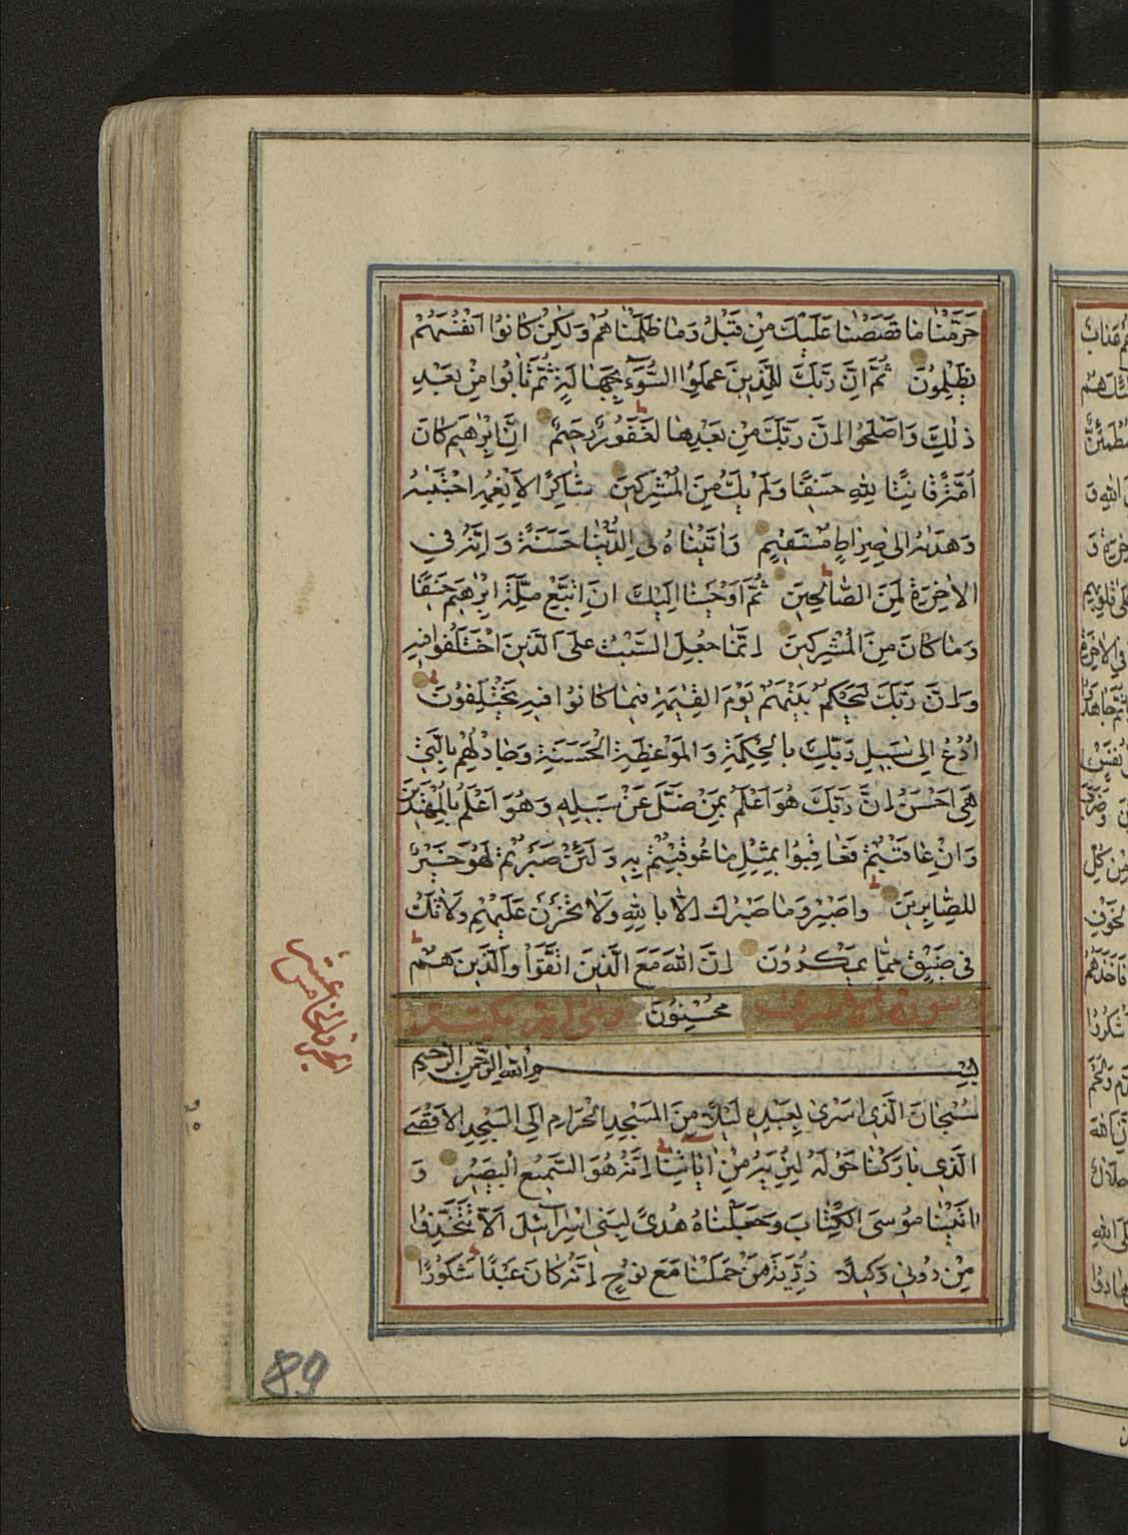 حَرَّمْنَا مَا قَصَصْنَا عَلَيْكَ مِنْ قَبْلُ وَمَا ظَلَمْنَاهُمْ وَلٰكِنْ كَانُوا اَنْفُسَهُمْ
يَظْلِمُونَ ثُمَّ اِنَّ رَبَّكَ لِلَّذِينَ عَمِلُوا السُّوٓءَ بِجَهَالَةٍ ثُمَّ تَابُوا مِنْ بَعْدِ
ذٰلِكَ وَاَصْلَحُوا اِنَّ رَبَّكَ مِنْ بَعْدِهَا لَغَفُورٌ رَحِيمٌ اِنَّ اِبْرٰهِيمَ كَانَ
اُمَّةً قَانِتًا لِلّٰهِ حَنِيفًا وَلَمْ يَكُ مِنَ الْمُشْرِكِينَ شَاكِرًا لِاَنْعُمِهِ اجْتَبٰيهُ
وَهَدٰيهُ اِلٰى صِرَاطٍ مُسْتَقِيمٍ وَاٰتَيْنَاهُ فِى الدُّنْيَا حَسَنَةً وَاِنَّهُ فِى
الْاٰخِرَةِ لَمِنَ الصَّالِحِينَ ثُمَّ اَوْحَيْنَا اِلَيْكَ اَنِ اتَّبِعْ مِلَّةَ اِبْرٰهِيمَ حَنِيفًا
وَمَا كَانَ مِنَ الْمُشْرِكِينَ اِنَّمَا جُعِلَ السَّبْتُ عَلَى الَّذِينَ اخْتَلَفُوا فِيهِ
وَاِنَّ رَبَّكَ لَيَحْكُمُ بَيْنَهُمْ يَوْمَ الْقِيٰمَةِ فِيمَا كَانُوا فِيهِ يَخْتَلِفُونَ
اُدْعُ اِلٰى سَبِيلِ رَبِّكَ بِالْحِكْمَةِ وَالْمَوْعِظَةِ الْحَسَنَةِ وَجَادِلْهُمْ بِالَّتِى
هِىَ اَحْسَنُ اِنَّ رَبَّكَ هُوَ اَعْلَمُ بِمَنْ ضَلَّ عَنْ سَبِيلِهِ وَهُوَ اَعْلَمُ بِالْمُهْتَدِينَ
وَاِنْ عَاقَبْتُمْ فَعَاقِبُوا بِمِثْلِ مَا عُوقِبْتُمْ بِهِ وَلَئِنْ صَبَرْتُمْ لَهُوَ خَيْرٌ
لِلصَّابِرِينَ وَاصْبِرْ وَمَا صَبْرُكَ اِلَّا بِاللّٰهِ وَلَا تَحْزَنْ عَلَيْهِمْ وَلَا تَكُ
فِى ضَيْقٍ مِمَّا يَمْكُرُونَ اِنَّ اللّٰهَ مَعَ الَّذِينَ اتَّقَوْا وَالَّذِينَ هُمْ
مُحْسِنُونَ
بِسْمِ اللّٰهِ الرَّحْمٰنِ الرَّحِيمِ
سُبْحَانَ الَّذِى اَسْرٰى بِعَبْدِهِ لَيْلًا مِنَ الْمَسْجِدِ الْحَرَامِ اِلَى الْمَسْجِدِ الْاَقْصَى
الَّذِى بَارَكْنَا حَوْلَهُ لِنُرِيَهُ مِنْ اٰيَاتِنَا اِنَّهُ هُوَ السَّمِيعُ الْبَصِيرُ وَ
اٰتَيْنَا مُوسَى الْكِتَابَ وَجَعَلْنَاهُ هُدًى لِبَنِى اِسْرَآئِلَ اَلَّا تَتَّخِذُوا
مِنْ دُونِى وَكِيلًا ذُرِّيَّةَ مَنْ حَمَلْنَا مَعَ نُوحٍ اِنَّهُ كَانَ عَبْدًا شَكُورًا
89